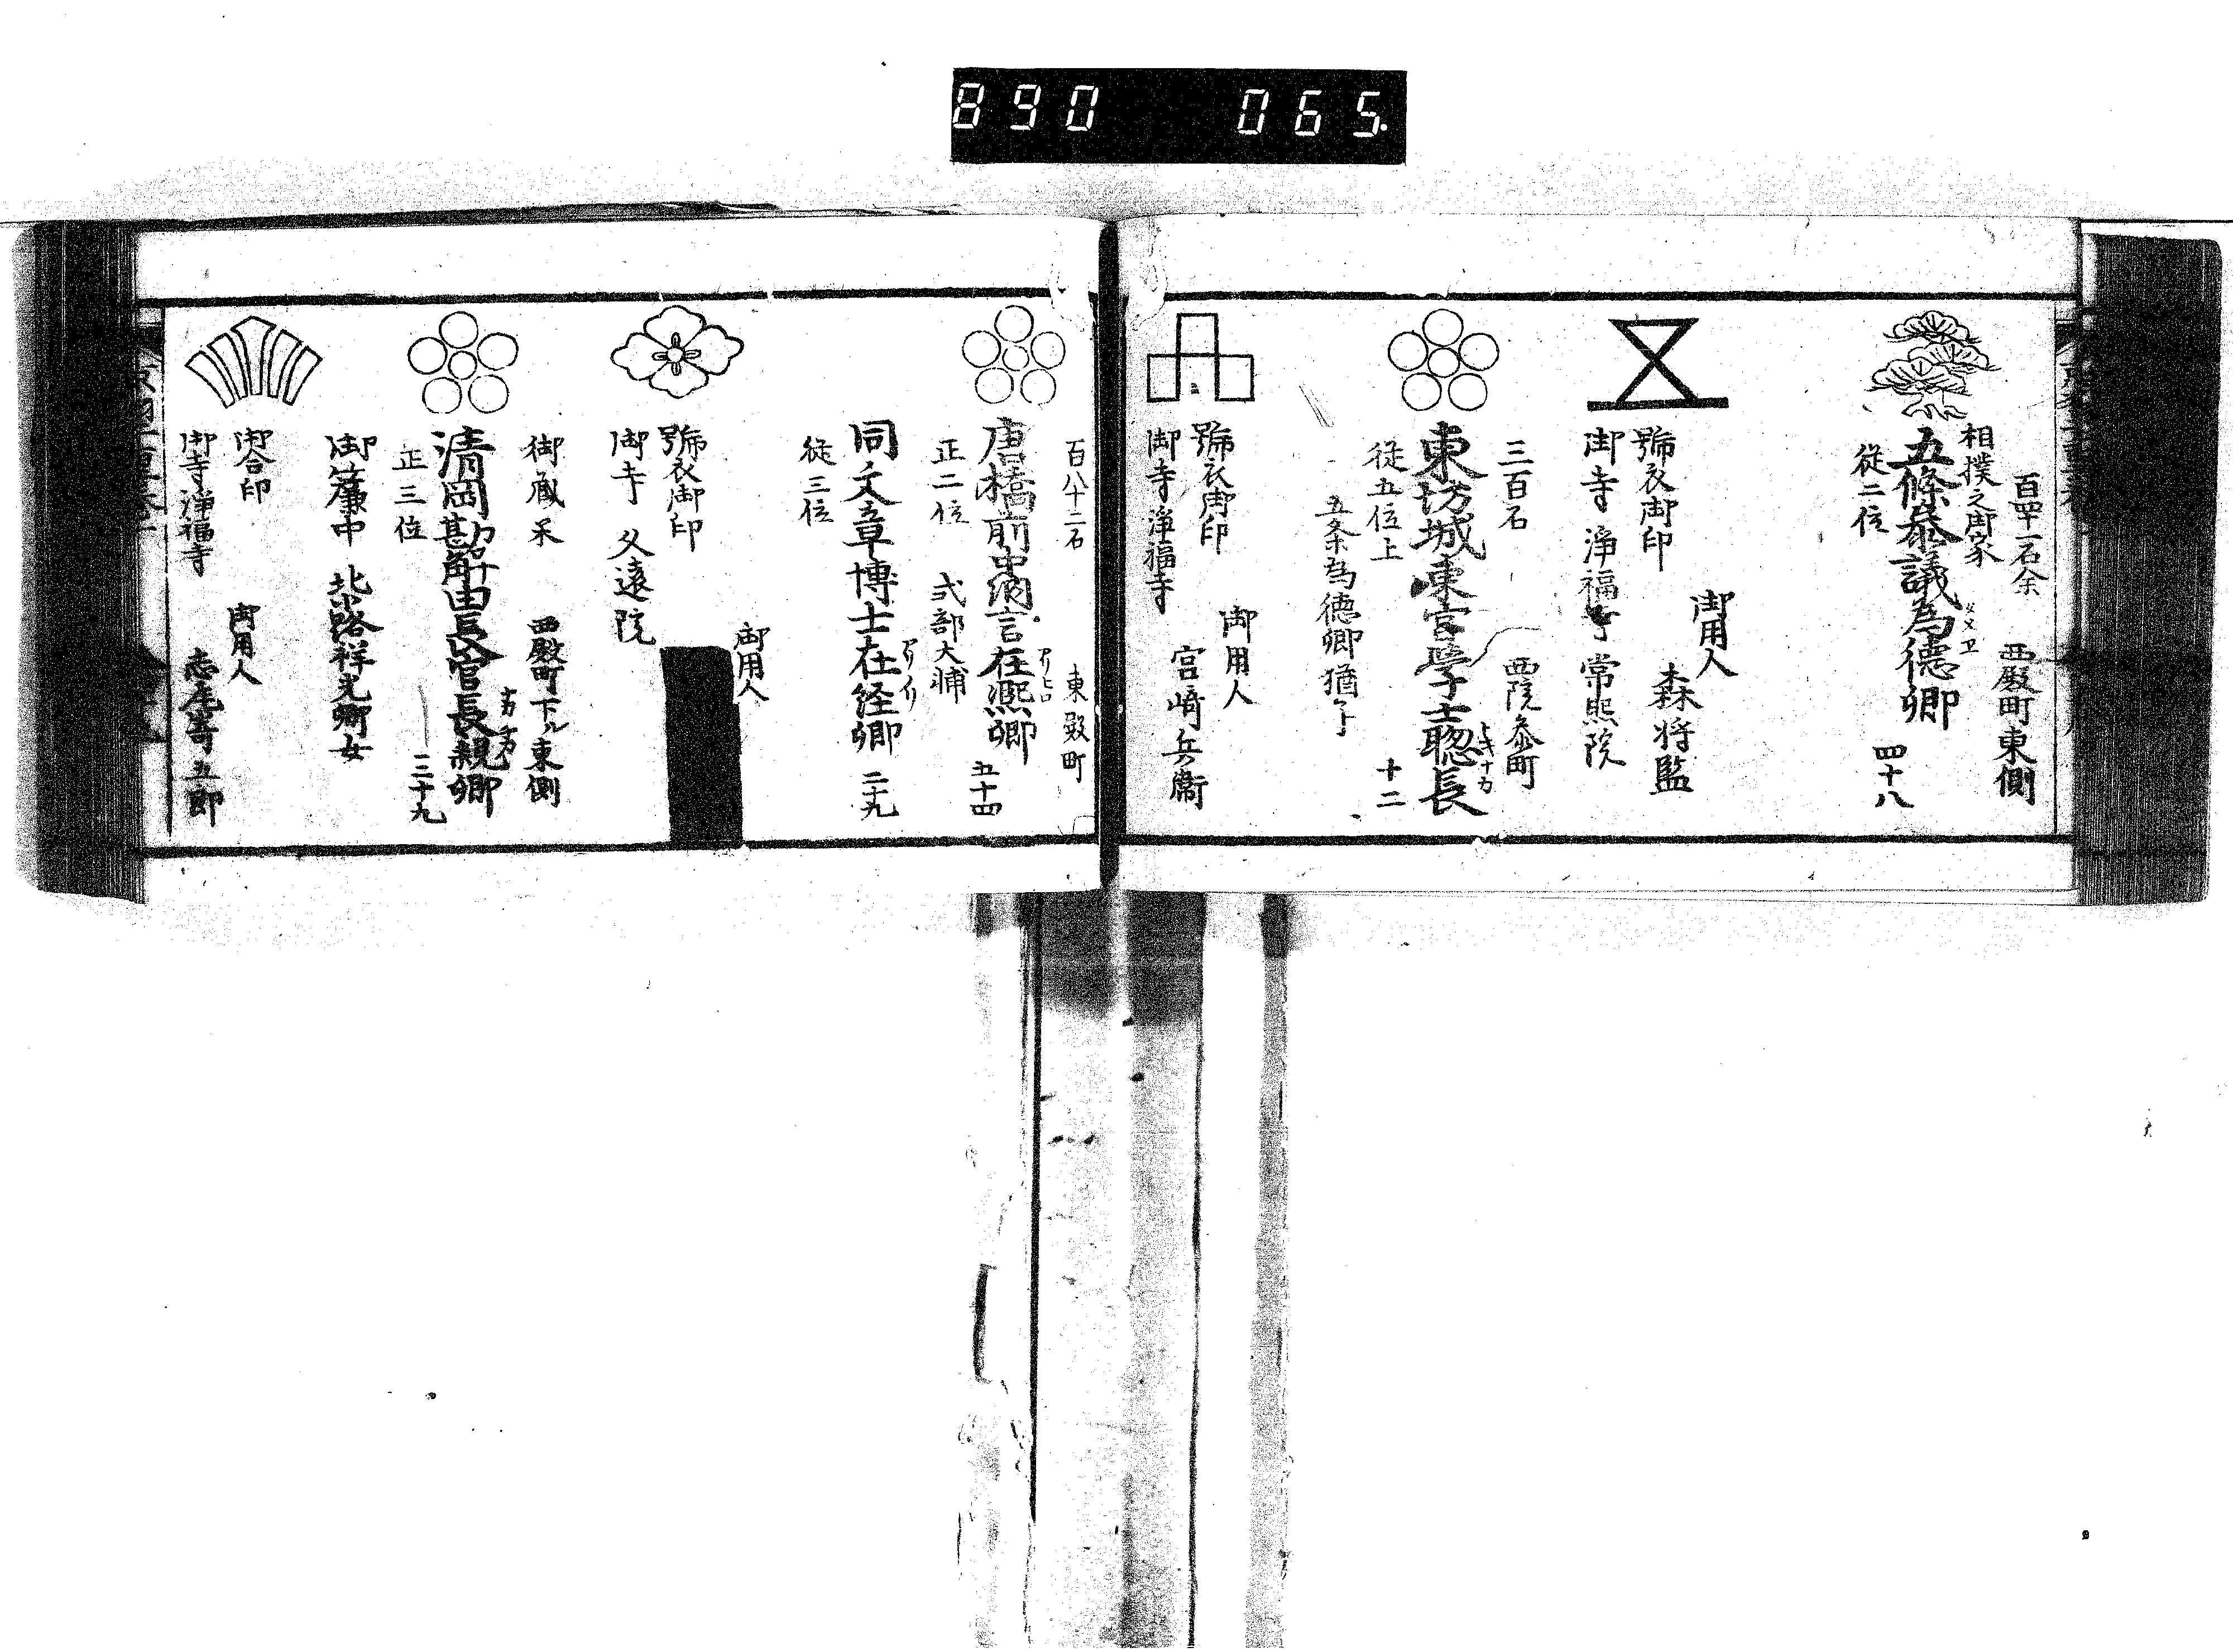 890 065
百四十一石余 西殿町東側
相撲之御家
五條参議為德卿 四十八
従二位
御用人
森将監
號衣御印
御寺 浄福寺 常照院
三百石 西院参町
東坊城東宮學士聰長
従五位上 十二
五条為德卿猶子
御用人
號衣御印
宮崎兵衛
御寺 浄福寺
百八十二石 東殿町
アリヒロ
唐橋前中納言在熙卿 五十四
正二位 式部大輔
同文章博士在経卿 二十九
従三位
御用人
號衣御印
御寺
御蔵米 西殿町下ル東側
清岡勘解由長官長親卿
正三位 三十九
御簾中 北小路祥光卿女
御合印
御用人
御寺浄福寺